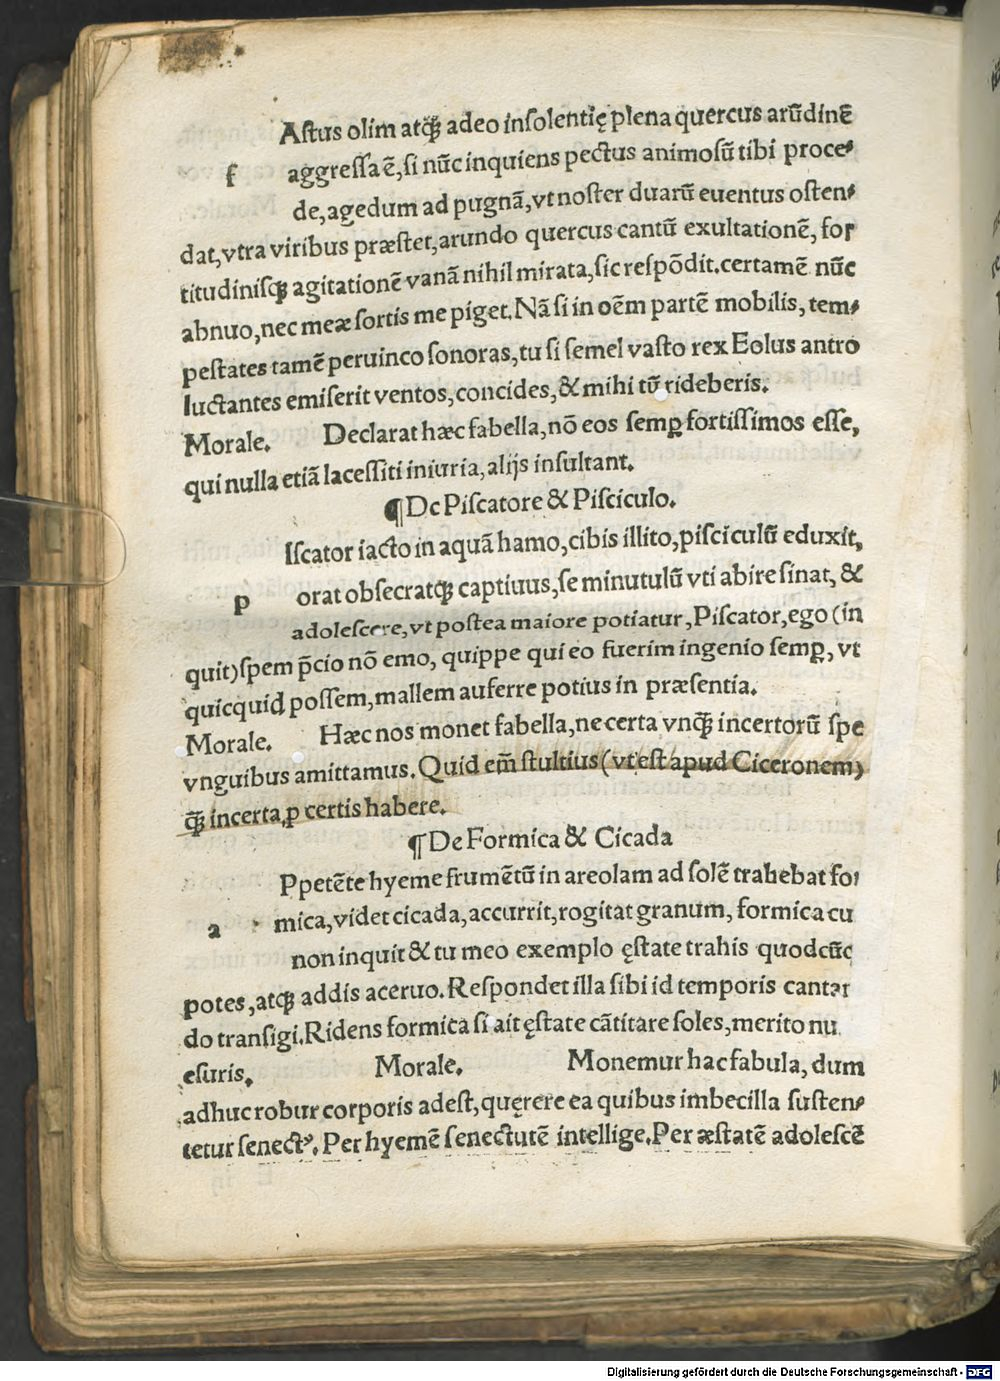 Astus olim atq̃ꝫ adeo insolentię plena quercus arũdinẽ
f aggressa ẽ, si nũc inquiens pectus animosũ tibi proce⸗
de, agedum ad pugnã, vt noster duarũ euentus osten⸗
dat, vtra viribus præstet, arundo quercus cantũ exultationẽ, for
titudinisq̃ꝫ agitationẽ vanã nihil mirata, sic respõdit. certamẽ nũc
abnuo, nec meæ sortis me piget. Nã si in oẽm partẽ mobilis, tem⸗
pestates tamẽ peruinco sonoras, tu si semel vasto rex Eolus antro
luctantes emiserit ventos, concides, & mihi tũ rideberis.
Morale. Declarat hæc fabella, nõ eos semꝑ fortissimos esse,
qui nulla etiã lacessiti iniuria, alijs insultant.
¶ De Piscatore & Pisciculo.
Iscator iacto in aquã hamo, cibis illito, pisciculũ eduxit,
p orat obsecratq̃ꝫ captiuus, se minutulũ vti abire sinat, &
adolescere, vt postea maiore potiatur, Piscator, ego (in
quit) spem p̃cio nõ emo, quippe qui eo fuerim ingenio semꝑ, vt
quicquid possem, mallem auferre potius in præsentia.
Morale. Hæc nos monet fabella, ne certa vnq̃ꝫ incertorũ spe
vnguibus amittamus. Quid em̃ stultius (vt est apud Ciceronem)
q̃ꝫ incerta, ꝓ certis habere.
¶ De Formica & Cicada
Ppetẽte hyeme frumẽtũ in areolam ad solẽ trahebat for
a mica, videt cicada, accurrit, rogitat granum, formica cu
non inquit & tu meo exemplo ęstate trahis quodcũc
potes, atq̃ꝫ addis aceruo. Respondet illa sibi id temporis cantar
do transigi. Ridens formica si ait ęstate cãtitare soles, merito nu
esuris. Morale. Monemur hac fabula, dum
adhuc robur corporis adest, quęrere ea quibus imbecilla susten⸗
tetur senectꝰ. Per hyemẽ senectutẽ intellige. Per æstatẽ adolescẽ
Digitalisierung gefördert durch die Deutsche Forschungsgemeinschaft - DFG